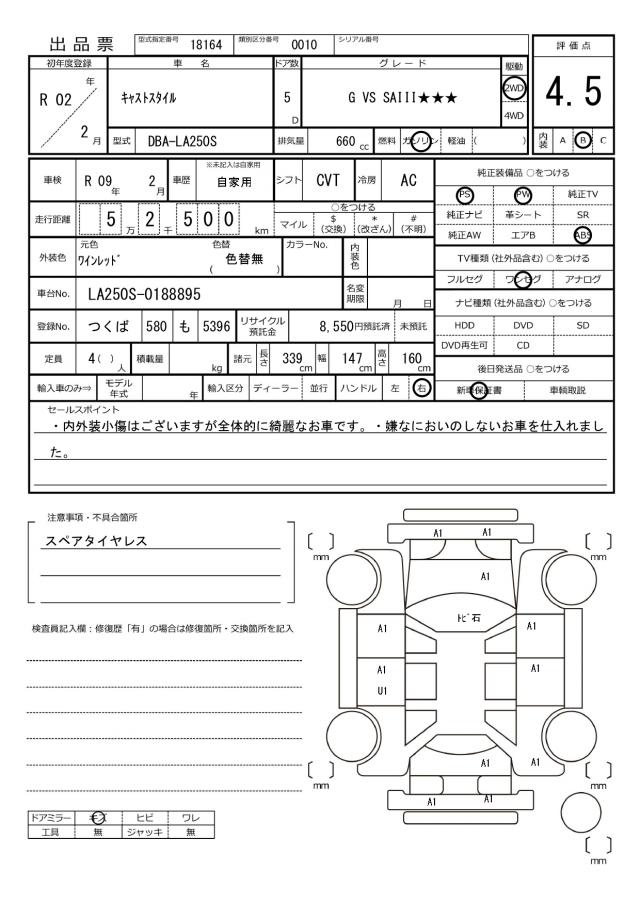 出品票
型式指定番号 18164 類別区分番号 0010 シリアル番号
評価点
4.5
内装 A B C
初年度登録 車名 ドア数 グレード 駆動
R 02 年 2 月
ｷｬｽﾄｽﾀｲﾙ 5 D G VS SAIII★★★ 2WD
4WD
型式 DBA-LA250S 排気量 660 cc 燃料 ガソリン 軽油 ( )
車検 R 09 年 2 月 車歴 ※未記入は自家用 自家用 シフト CVT 冷房 AC
走行距離 5 万 2 千 5 0 0 km
○をつける
マイル $ (交換) * (改ざん) # (不明)
外装色 元色 ﾜｲﾝﾚｯﾄﾞ 色替 ( 色替無 ) カラーNo. 内装色
車台No. LA250S-0188895 名変期限 月 日
登録No. つくば 580 も 5396 リサイクル預託金 8,550円預託済 未預託
定員 4( ) 人 積載量 kg 諸元 長さ 339 cm 幅 147 cm 高さ 160 cm
輸入車のみ⇒ モデル年式 年 輸入区分 ディーラー 並行 ハンドル 左 右
純正装備品 ○をつける
PS PW 純正TV
純正ナビ 革シート SR
純正AW エアB ABS
TV種類(社外品含む)○をつける
フルセグ ワンセグ アナログ
ナビ種類(社外品含む)○をつける
HDD DVD SD
DVD再生可 CD
後日発送品 ○をつける
新車保証書 車輌取説
セールスポイント
・内外装小傷はございますが全体的に綺麗なお車です。・嫌なにおいのしないお車を仕入れまし
た。
注意事項・不具合箇所
スペアタイヤレス
検査員記入欄：修復歴「有」の場合は修復箇所・交換箇所を記入
ドアミラー キズ ヒビ ワレ
工具 無 ジャッキ 無
A1 A1
mm mm
A1
ﾄﾋﾞ石
A1 A1
A1 A1
U1
A1 A1
mm mm
A1 A1
mm